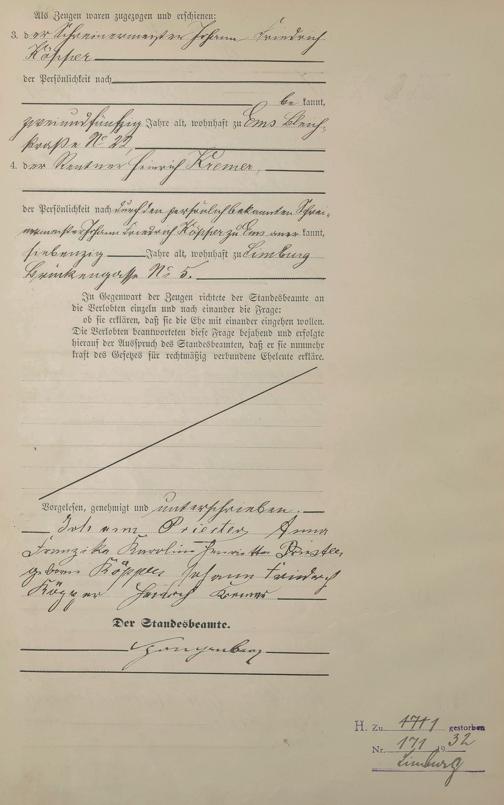 Als Zeugen waren zugezogen und erschienen:
3. der Schreinermeister Johann Friedrich
Köpper
der Persönlichkeit nach
be kannt,
zweiundfünfzig Jahre alt, wohnhaft zu Ems Bleich-
straße No 22,
4. der Rentner Heinrich Kremer,
der Persönlichkeit nach durch den persönlich bekannten Schrei-
nermeister Johann Friedrich Köpper zu Ems aner kannt,
siebenzig Jahre alt, wohnhaft zu Limburg
Brückengasse No 5.
In Gegenwart der Zeugen richtete der Standesbeamte an
die Verlobten einzeln und nach einander die Frage:
ob sie erklären, daß sie die Ehe mit einander eingehen wollen.
Die Verlobten beantworteten diese Frage bejahend und erfolgte
hierauf der Ausspruch des Standesbeamten, daß er sie nunmehr
kraft des Gesetzes für rechtmäßig verbundene Eheleute erkläre.
Vorgelesen, genehmigt und unterschrieben.
Johann Priester Anna
Franziska Karoline Henriette Priester
geborene Köpper Johann Friedrich
Köpper Heinrich Kremer
Der Standesbeamte.
H. Zu 1711 gestorben
Nr. 171 19 32
Limburg